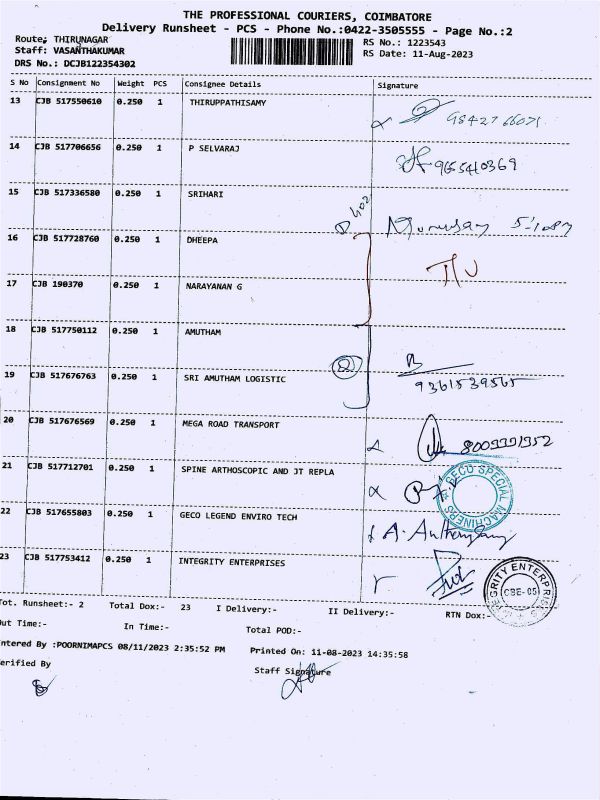 THE PROFESSIONAL COURIERS, COIMBATORE
Delivery Runsheet - PCS - Phone No.:0422-3505555 - Page No.:2
Route: THIRUNAGAR
Staff: VASANTHAKUMAR
DRS No.: DCJB122354302
RS No.: 1223543
RS Date: 11-Aug-2023
S No Consignment No Weight PCS Consignee Details Signature
13 CJB 517550610 0.250 1 THIRUPPATHISAMY
14 CJB 517706656 0.250 1 P SELVARAJ
15 CJB 517336580 0.250 1 SRIHARI
16 CJB 517728760 0.250 1 DHEEPA
17 CJB 190370 0.250 1 NARAYANAN G
18 CJB 517750112 0.250 1 AMUTHAM
19 CJB 517676763 0.250 1 SRI AMUTHAM LOGISTIC
9361539565
20 CJB 517676569 0.250 1 MEGA ROAD TRANSPORT
21 CJB 517712701 0.250 1 SPINE ARTHOSCOPIC AND JT REPLA
SECO SPECIAL MACHINERS
22 CJB 517655803 0.250 1 GECO LEGEND ENVIRO TECH
23 CJB 517753412 0.250 1 INTEGRITY ENTERPRISES
EGRITY ENTERPRISES
CBE-05
Tot. Runsheet:- 2 Total Dox:- 23 I Delivery:- II Delivery:- RTN Dox:-
Out Time:- In Time:- Total POD:-
ntered By :POORNIMAPCS 08/11/2023 2:35:52 PM Printed On: 11-08-2023 14:35:58
erified By Staff Signature